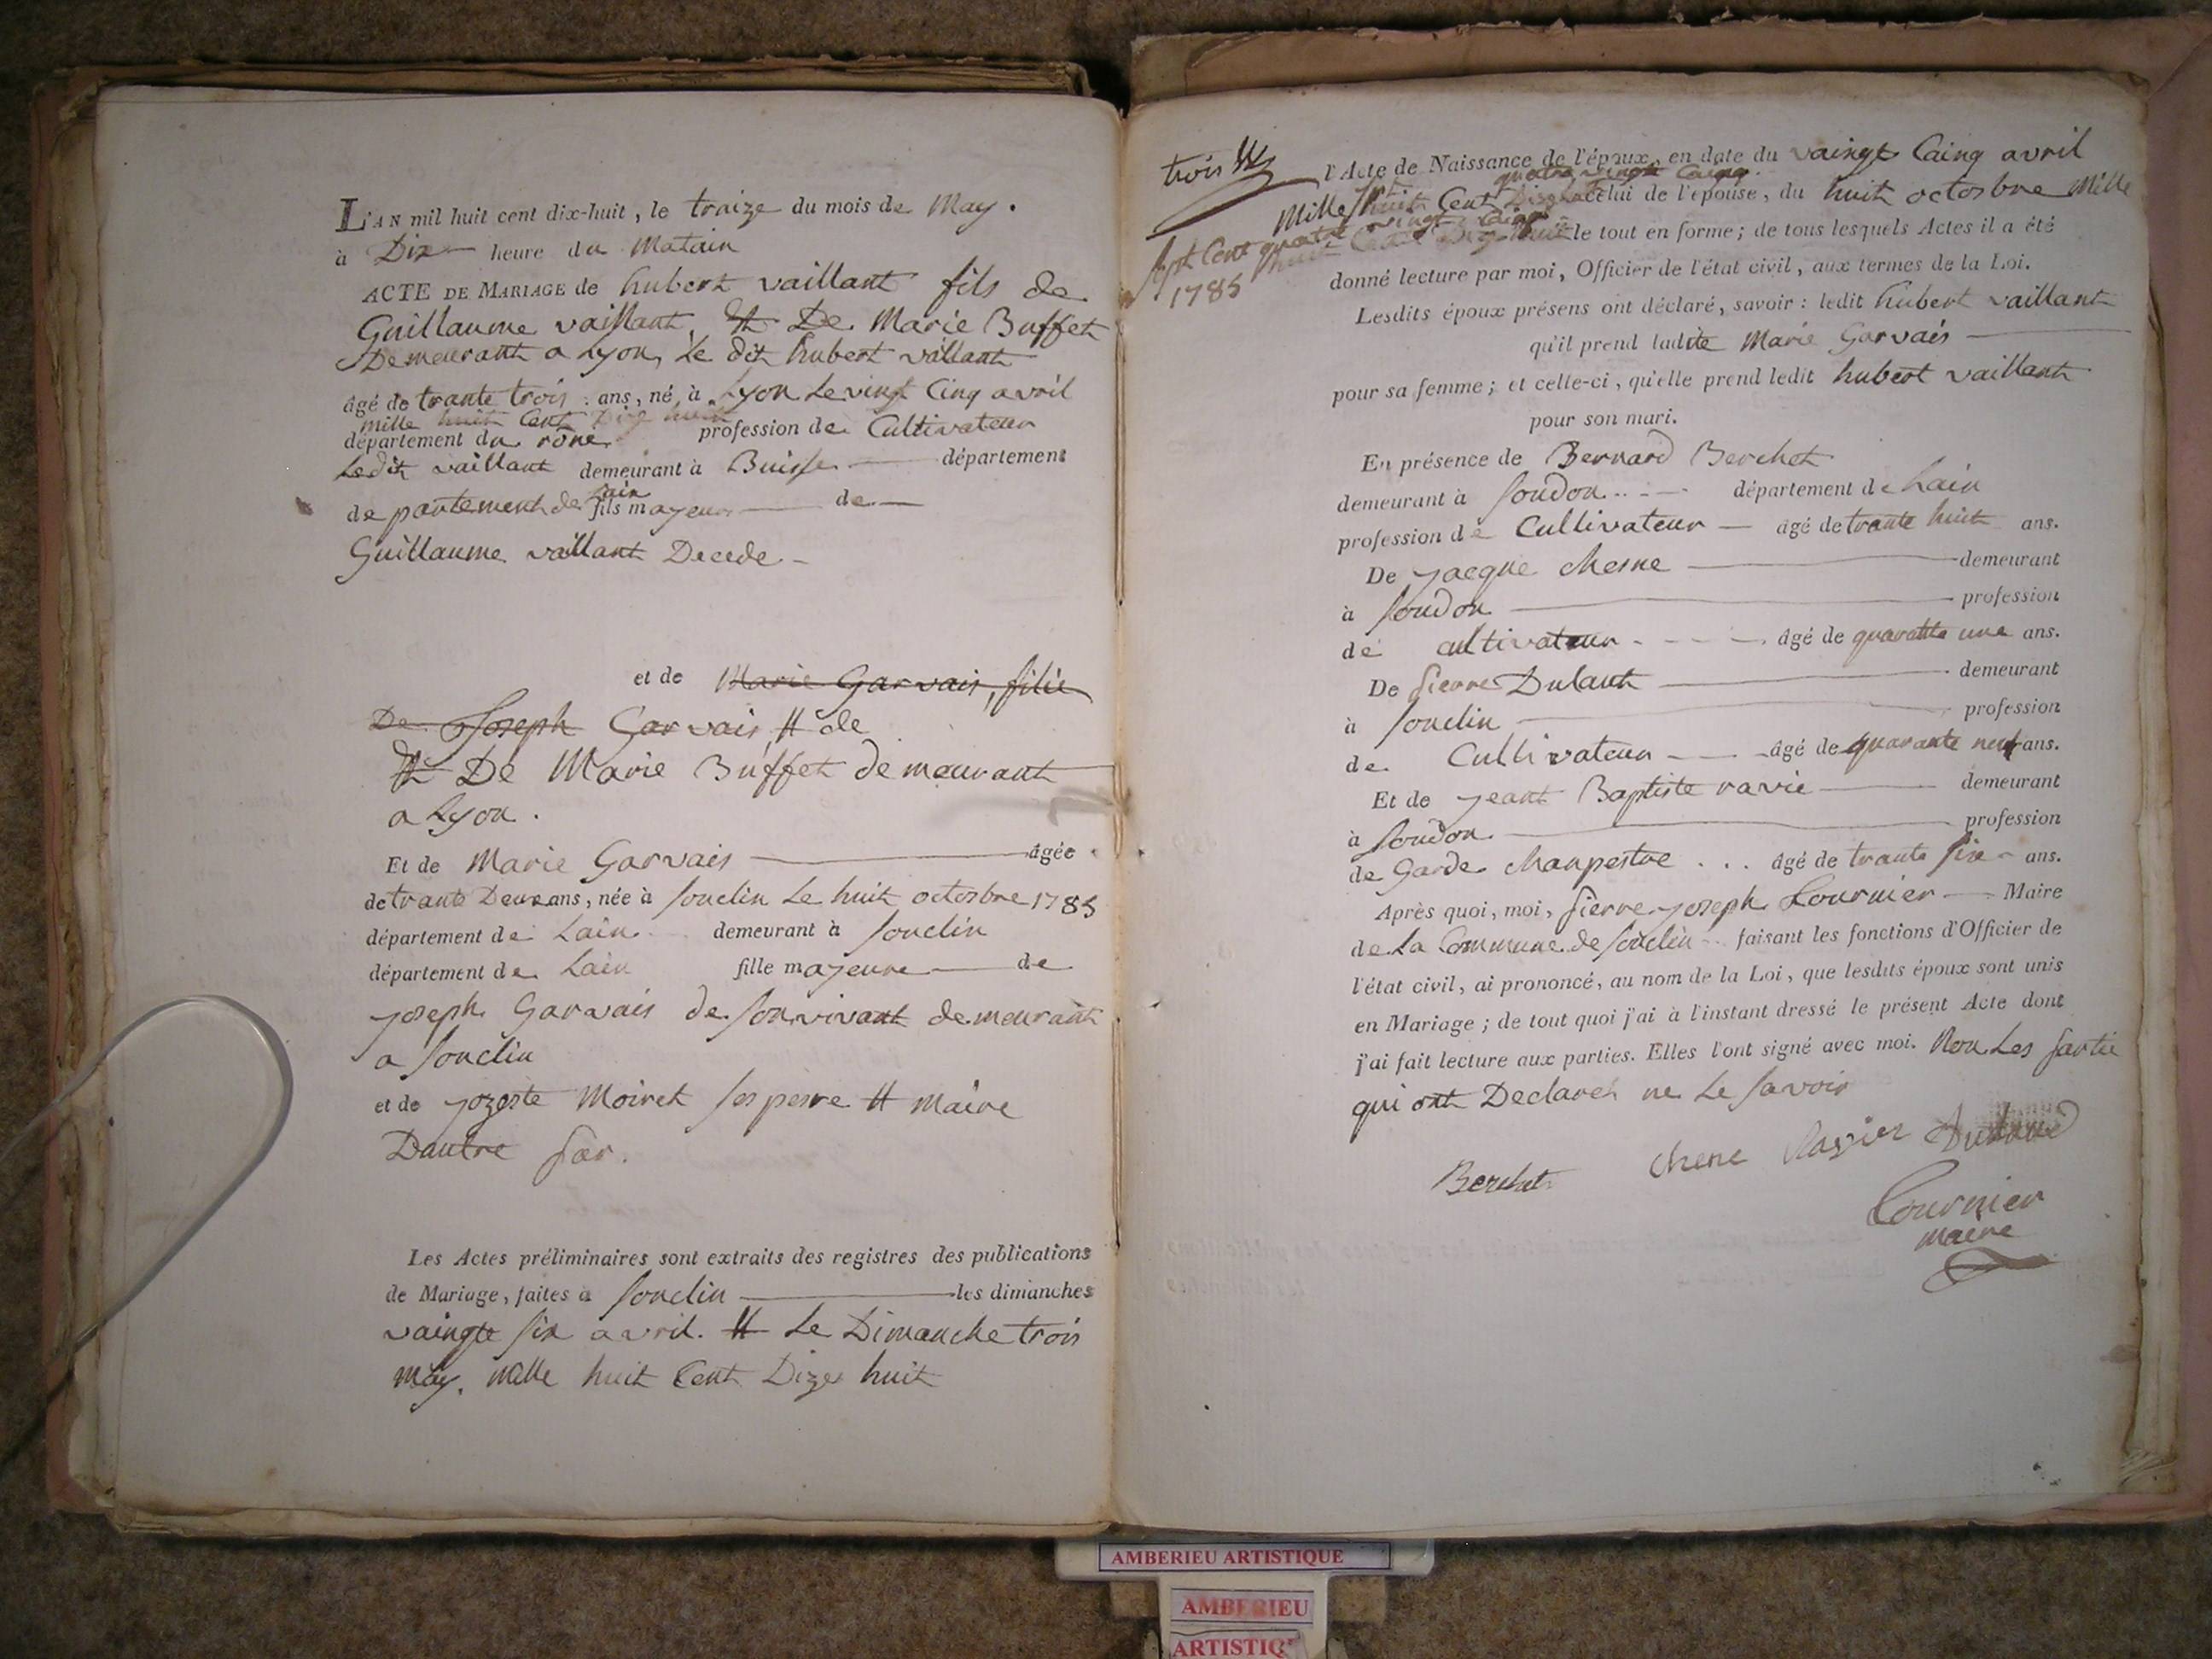 L'AN mil huit cent dix-huit, le traize du mois de May.
à Dix heure du Matain
ACTE DE MARIAGE de hubert vaillant fils de
Guillaume vaillant, et De Marie Buffet
Demeurant a Lyon, Le dit hubert vaillant
âgé de trante trois ans, né à Lyon Le vingt Cinq avril
mille huit Cent Dix huit
département du rône profession de Cultivateur
Ledit vaillant demeurant à Buisse département
de partement de Lain fils mayeur de
Guillaume vaillant Decede
et de Marie Garvais, fille
De Joseph Garvais et de
et De Marie Buffet demeurant
a Lyon.
Et de Marie Garvais âgée
de trante Deux ans, née à Souclin Le huit octosbre 1785
département de Lain demeurant à Souclin
département de Lain fille majeure de
joseph Garvais de Sonvivant demeurant
a Souclin
et de Moiret ses pesre et maire
Dautre par.
Les Actes préliminaires sont extraits des registres des publications
de Mariage, faites à Souclin les dimanches
vaingte six avril. et Le Dimanche trois
may. mille huit Cent Dize huit
trois
l'Acte de Naissance de l'époux, en date du vaingt Cainq avril
quatre vingt Cainq
Mille Sept Cent celui de l'épouse, du huit octosbre Mille
Sept Cent quatre vingt Cainq le tout en forme; de tous lesquels Actes il a été
1785
donné lecture par moi, Officier de l'état civil, aux termes de la Loi.
Lesdits époux présens ont déclaré, savoir: ledit hubert vaillant
qu'il prend ladite Marie Garvais
pour sa femme; et celle-ci, qu'elle prend ledit hubert vaillant
pour son mari.
En présence de Bernard Berchet
demeurant à Soudon département de Lain
profession de Cultivateur âgé de trante huit ans.
De jacque chesne demeurant
à Soudon profession
de cultivateur âgé de quarante une ans.
De pierre Dulaut demeurant
à Souclin profession
de Cultivateur âgé de quarante neuf ans.
Et de jeant Baptiste ravie demeurant
à Soudon profession
de Garde chanpestre âgé de trante six ans.
Après quoi, moi, pierre joseph Tournier Maire
de La Commune de Souclin faisant les fonctions d'Officier de
l'état civil, ai prononcé, au nom de la Loi, que lesdits époux sont unis
en Mariage; de tout quoi j'ai à l'instant dressé le présent Acte dont
j'ai fait lecture aux parties. Elles l'ont signé avec moi. Non Les partie
qui ont Declares ne Le Savoir
Berchet chene
Tournier
maire
AMBERIEU ARTISTIQUE
AMBERIEU
ARTISTIQ